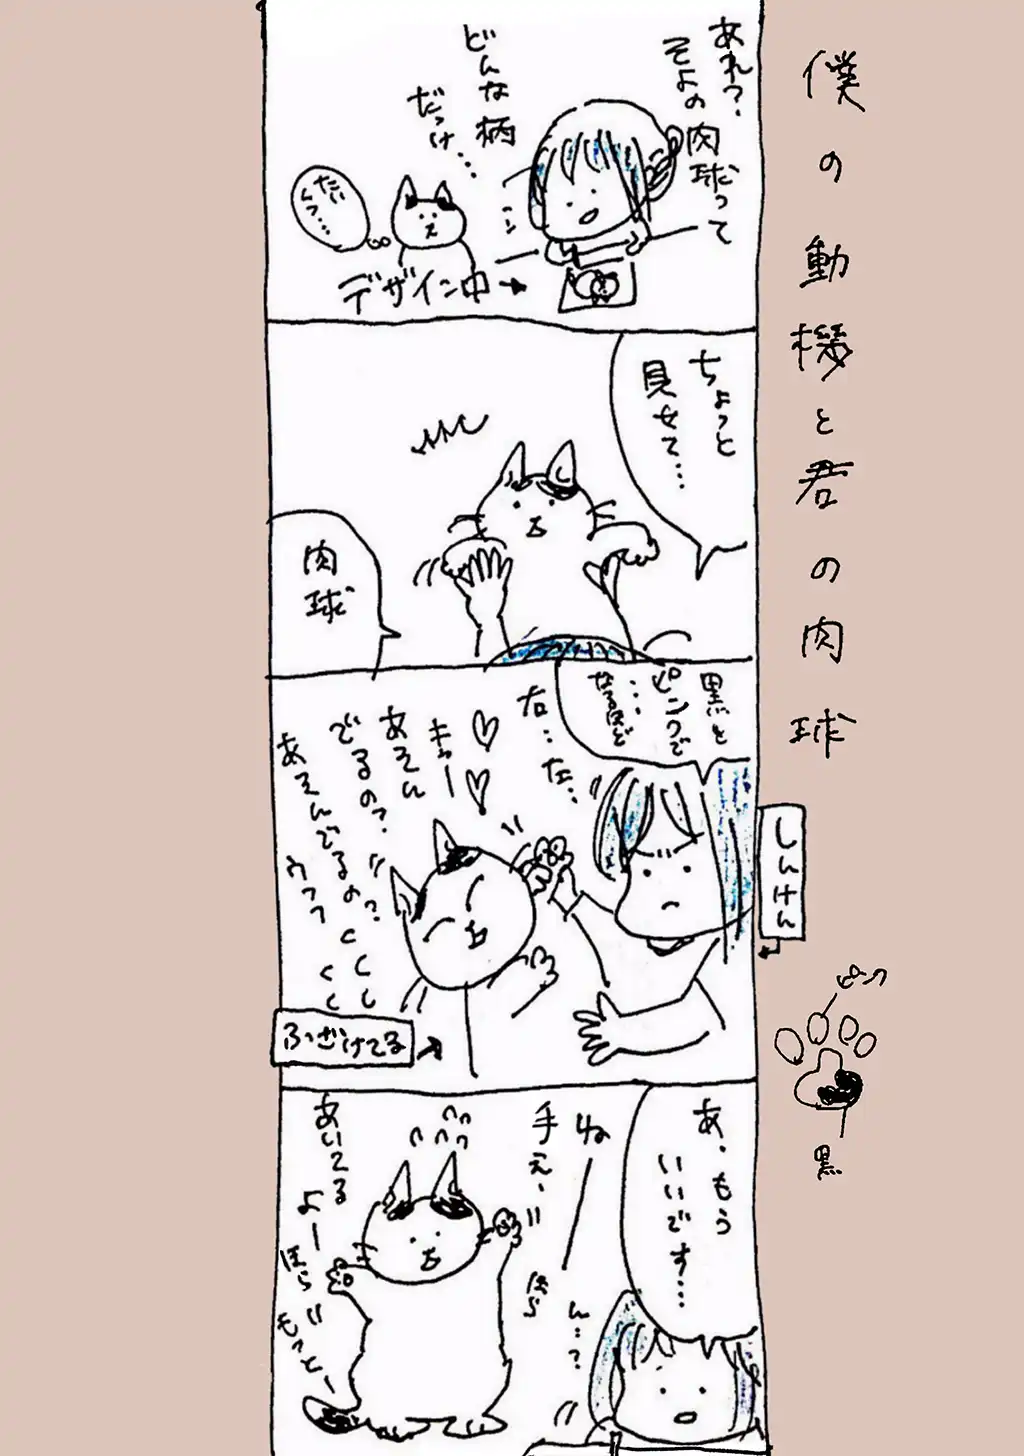 僕の動機と君の肉球
あれ?
そよの肉球って
どんな柄
だっけ…
たい
くつ…
デザイン中
ちょっと
見せて…
肉球
黒と
ピンクで
…なるほど
右…左…
キャー
あそん
でるの?
あそんでるの?
くくし
ウフフ
しんけん
ふざけてる
ピンク
黒
あ、もう
いいです…
ねーん…?
手え、
ほら
あいてる
よー
ほら
もっとー